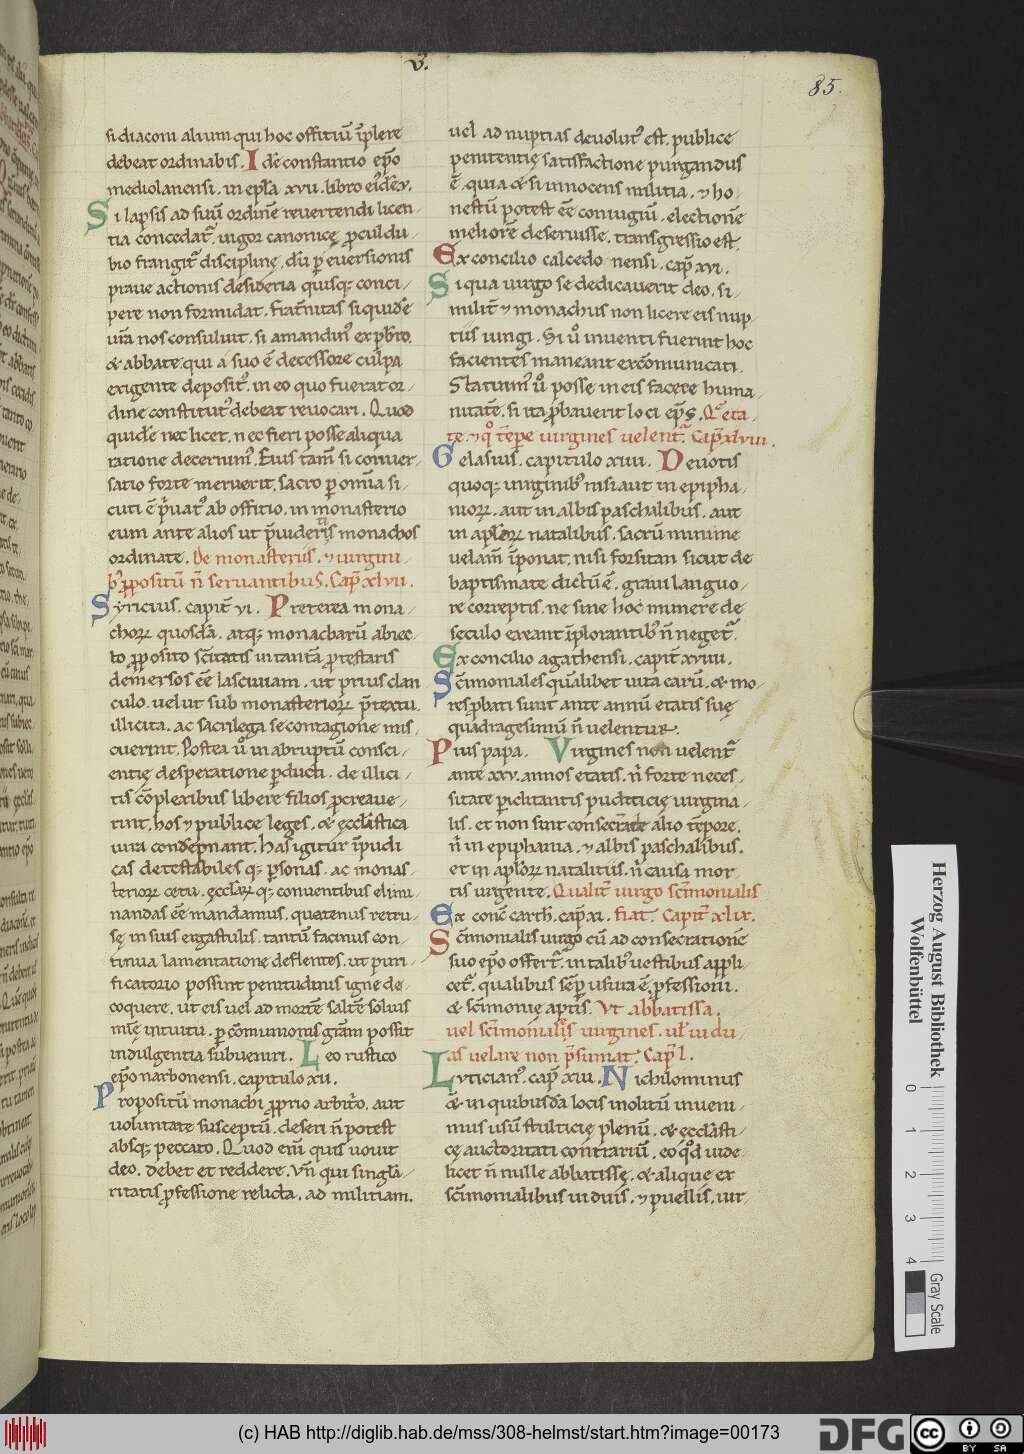 v.
85.
si diaconi alium qui hoc offitiū īplere
debeat ordinabis. I dē constantio ep̄o
mediolanensi. in ep̄la xvii. libro
Si lapsis ad suū ordinē reuertendi licen-
tia concedat᷒, uigor canonicę p̱culdu-
bio frangit᷒ disciplinę, dū ꝑ euersionis
praue actionis desideria quisq; conci-
pere non formidat. fr̄at̄nitas siquidē
ur̄a nos consuluit. si amandin᷒ exp̄bro.
& abbate. qui a suo ē decessore culpa
exigente deposit᷒. in eo quo fuerat or-
dine constitut᷒ debeat reuocari. Quod
quidē nec licet. nec fieri posse aliqua
ratione decernim᷒. Eius tam̄ si conuer-
satio forte meruerit. sacro ꝑ om̄ia si-
cuti ē p̄uat᷒ ab offitio. in monasterio
eum ante alios ut p̄uideritis monachos
ordinate. De monasteriis. ⁊ uirgini-
b᷒ p̱positū n̄ seruantibus. Cap̄ xlvii.
Syricius. capit̄ vi. Preterea mona-
choꝝ quosdā. atq; monacharū abiec-
to p̱posito sc̄itatis in tantā p̱testaris
demersos eē lasciuiam. ut prius clan-
culo. uelut sub monasterioꝝ p̄textu.
illicita. ac sacrilega se contagione mis-
cuerint. Postea ů in abruptū consci-
entię desperatione ꝑducti. de illici-
tis cōplexibus liberē filios p̱creaue-
rint. hos ⁊ publice leges. & ęccl̄astica
iura condēpnant. Has igitur īpudi-
cas detestabiles q; ꝑsonas. ac monas-
terioꝝ cetu. ęccl̄arꝝ q; conuentibus elimi-
nandas eē mandamus. quatenus retru-
sę in suis ergastulis. tantū facinus con-
tinua lamentatione deflentes. ut puri-
ficatorio possint penitudinis igne de-
coquere. ut eis uel ad mortē saltē solius
mīę intuitu. ꝑ cōmunionis gr̄am possit
indulgentia subueniri. Leo rustico
ep̄o narbonensi. capitulo xii.
Propositū monachi p̱prio arbitro. aut
uoluntate susceptū. deseri n̄ potest
absq; peccato. Quod eni quis uouit
deo. debet et reddere. Vn̄ qui singla-
ritatis p̱fessione relicta. ad militiam.
uel ad nuptias deuolut᷒ est. publice
penitentię satisfactione purgandus
ē. quia & si innocens militia. ⁊ ho-
nestū potest eē coniugiū. electionē
meliorē deseruisse. transgressio est.
Ex concilio calcedonensi. cap̄ xvi.
Si qua uirgo se dedicauerit deo. si-
milit̄ ⁊ monachus non licere eis nup-
tiis iungi. Si ů inuenti fuerint hoc
facientes maneant excōmunicati.
Statuim᷒ ů posse in eis facere huma-
nitatē. si ita p̱bauerit loci ep̄s. Q̄ eta-
te. ⁊ qͦ tēpe uirgines uelent᷒. Cap̄ xlviii.
Gelasius. capitulo xiiii. Deuotis
quoq; uirginib᷒ nisi aut in epipha-
nioꝝ. aut in albis paschalibus. aut
in apl̄oꝝ natalibus. sacrū minime
uelam̄ īponat. nisi forsitan sicut de
baptismate dictū ē. graui languo-
re correptis. ne sine hoc munere de
seculo exeant īplorantib᷒ n̄ neget᷒.
Ex concilio agathensi. capit̄ xviiii.
Sc̄imoniales quālibet uita carū. & mo-
res p̱bati sunt ante annū etatis suę
quadragesimū n̄ uelentur.
Pius papa. Virgines non uelent᷒
ante xxv. annos etatis. n̄ forte neces-
sitate ꝑiclitantis pudititię uirgina-
lis. et non sint consecrate alio tēpore.
n̄ in epiphania. ⁊ albis paschalibus.
et in apl̄oꝝ nataliciis. n̄ causa mor-
tis urgente. Qualit̄ uirgo sc̄imonialis
Ex conc̄ carth. cap̄ xi. fiat. Capit̄ xlix.
Sc̄imonialis uirgo cū ad consecrationē
suo ep̄o offert᷒. in talib᷒ uestibus appli-
cet᷒. qualibus sēp̱ usura ē. p̱fessioni.
& sc̄imonię aptis. Vt abbatissa.
uel sc̄imonialis uirgines. ul̄ uidu-
as uelare non p̄sumat. Cap̄ l.
Lytician᷒. cap̄ xiii. Nichilominus
& in quibusdā locis inolitū inueni-
mus usū stultitię plenū. & ęccl̄asti-
cę auctoritati contrariū. eo qͦd uide-
licet n̄ nulle abbatissę. & alique ex
sc̄imonialibus uiduis. ⁊ puellis. uir-
Herzog August Bibliothek
Wolfenbüttel
0 1 2 3 4
Gray Scale
(c) HAB http://diglib.hab.de/mss/308-helmst/start.htm?image=00173
DFG
cc
BY SA